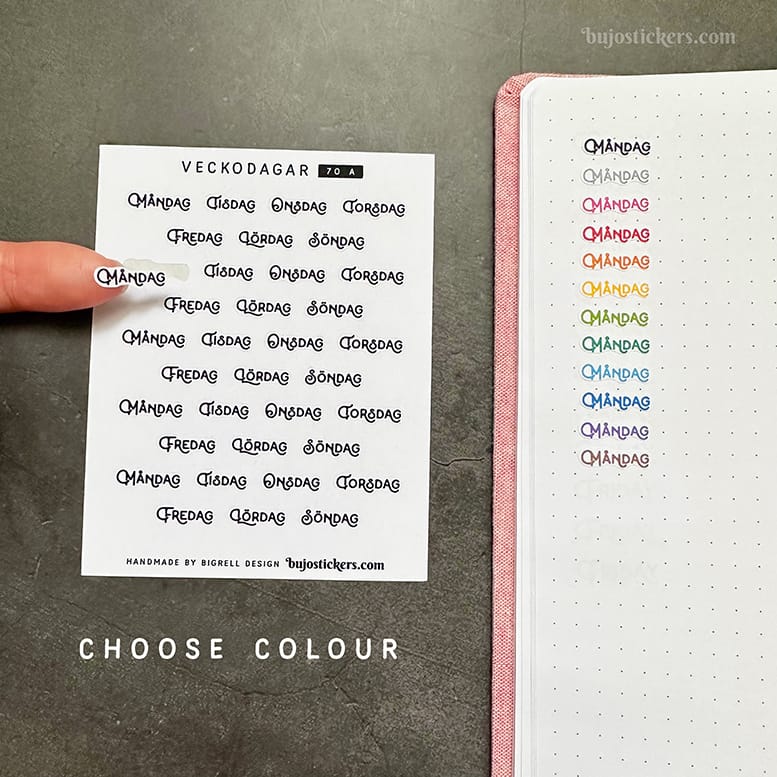 bujostickers.com
VECKODAGAR 70 A
MÅNDAG TISDAG ONSDAG TORSDAG
FREDAG LÖRDAG SÖNDAG
MÅNDAG TISDAG ONSDAG TORSDAG
FREDAG LÖRDAG SÖNDAG
MÅNDAG TISDAG ONSDAG TORSDAG
FREDAG LÖRDAG SÖNDAG
MÅNDAG TISDAG ONSDAG TORSDAG
FREDAG LÖRDAG SÖNDAG
MÅNDAG TISDAG ONSDAG TORSDAG
FREDAG LÖRDAG SÖNDAG
HANDMADE BY BIGRELL DESIGN bujostickers.com
CHOOSE COLOUR
MÅNDAG
MÅNDAG
MÅNDAG
MÅNDAG
MÅNDAG
MÅNDAG
MÅNDAG
MÅNDAG
MÅNDAG
MÅNDAG
MÅNDAG
MÅNDAG
FRIDAY